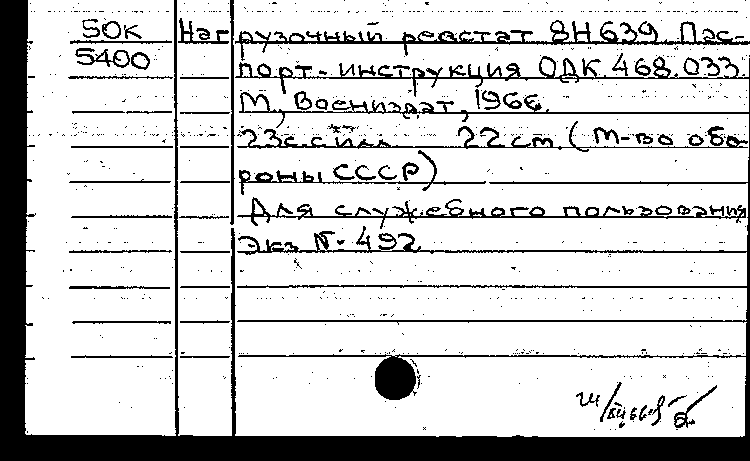 50К Нагрузочный реостат 8Н639. Пас-
5400 порт-инструкция ОДК.468.033.
М, Воениздат, 1966.
23с. с илл. 22 см. (М-во обо-
роны СССР)
Для служебного пользования
Экз № 492